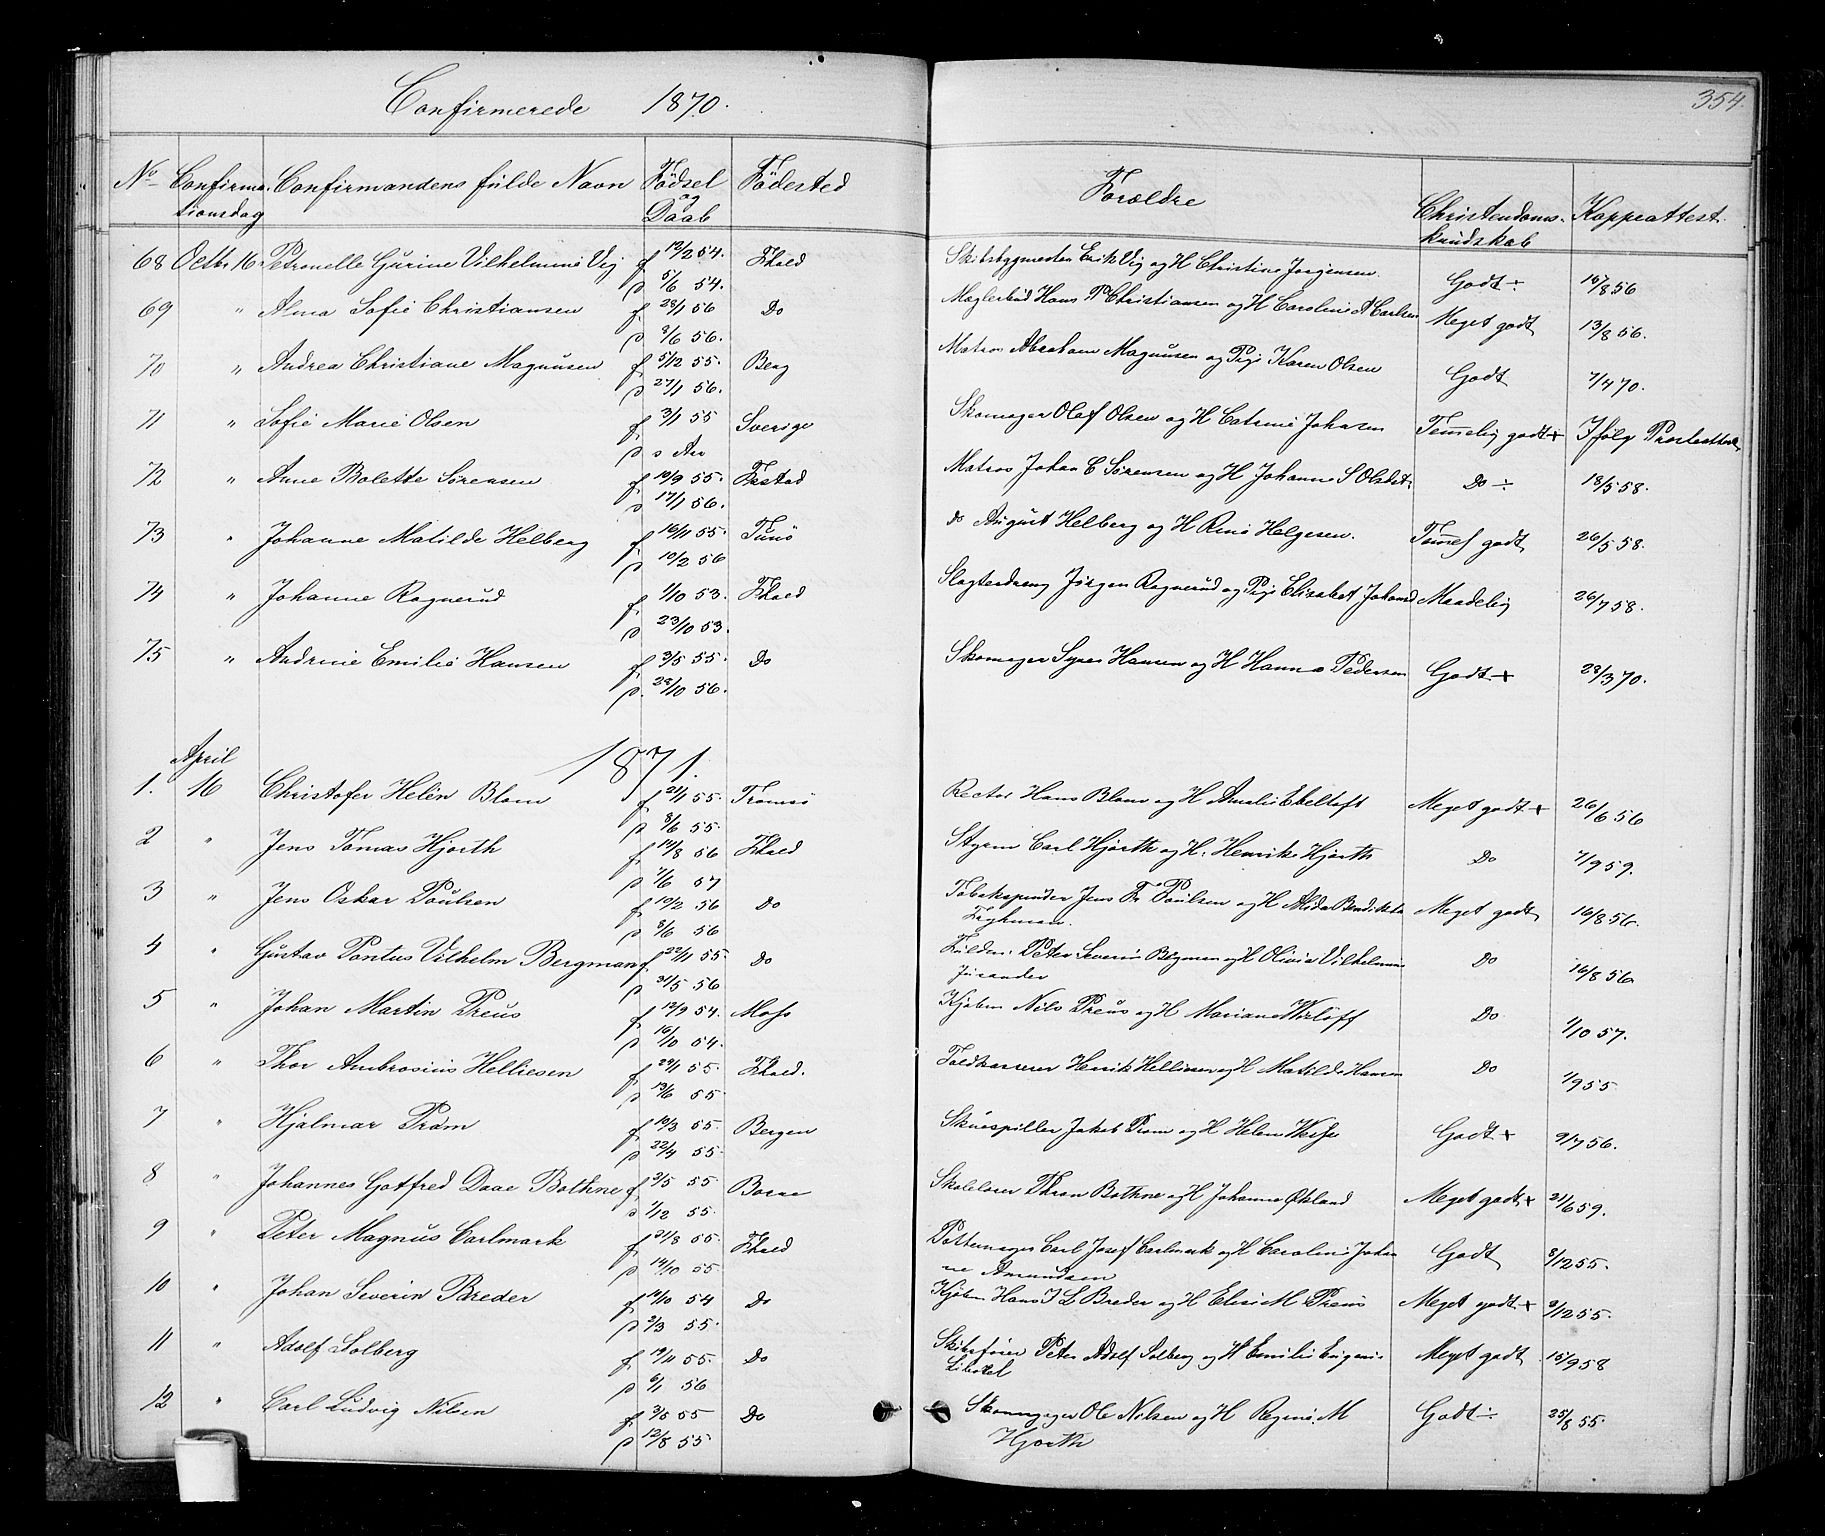 Confirmerede 1870.
354.
No Confirmationsdag Confirmandens fulde Navn Fødsel og Daab Fødested Forældre Christendomskundskab Koppeattest
68 Octbr 16 Petronelle Gurine Vilhelmine Vig f 12/2 54. Fhald Skibsbygmester Erik Vig og H Christine Jørgensen. Godt ÷ 15/8 56
d 5/6 54.
69 " Alma Sofie Christiansen f 28/1 56 Do Mæglerbud Hans P Christiansen og H Caroline A Carlsen Meget godt 13/8 56.
d 8/6 56.
70 " Andrea Christiane Magnusen f 5/12 55. Berg Matros Abraham Magnusen og Pige Karen Olsen Godt 7/4 70.
d 27/1 56.
71 " Sofie Marie Olsen f 3/1 55 Sverige Skomager Olaf Olsen og H Catrine Johnsen Temmelig godt + Ifølg Præsteattest
d s Aar
72 " Anne Bolette Sørensen f 10/9 55. Frstad Matros Johan C Sørensen og H Johanne S Olsdt. Do ÷ 18/5 58.
d 17/1 56.
73 " Johanne Matilde Helberg f 16/11 55. Tunø do August Helberg og H Rine Helgesen. Temmel godt 26/5 58.
d 10/2 56
74 " Johanne Ragnerud f 1/10 53. Fhald Slagterdreng Jørgen Ragnerud og Pige Elisabet Johansd Maadelig 26/7 58.
d 23/10 53.
75 " Andrine Emilie Hansen f 3/5 55. Do Skomager Syver Hansen og H Hanna Pedersen Godt + 28/3 70.
d. 28/10 56.
1871.
April
1. 16 Christofer Helén Blom f 21/1 55. Tromsø Rector Hans Blom og H Amalie Ebeltoft Meget godt + 26/6 56
d 8/6 55.
2 " Jens Tomas Hjorth f 14/8 56 Fhald Styrm Carl Hjorth og H. Henrike Hjorth Do 7/9 59.
d 7/6 57
3 " Jens Oskar Poulsen f 10/2 56 Do Tobakspinder Jens Fr Poulsen og H Alida Bendikta Meget godt 16/8 56.
d 8/6 56
4 " Gustav Pontus Vilhelm Bergman f 22/1 55. Do Peter Severin Bergman og H Olivia Vilhelmine Do 16/8 56
d 31/5 56
5 " Johan Martin Preus f 12/9 54. Moss Kjøbm Nils Preus og H Mariane Wirloff Do 1/10 57.
d 16/10 54.
6 " Thor Ambrosius Helliesen f 29/1 55. Fhald. Toldkasserer Henrik Helliesen og H Matilde Hansen Do 1/9 55
d 13/6 55
7 " Hjalmar Prøm f 10/3 55. Bergen Skuespiller Jakob Prøm og H Helene Weise Godt + 9/7 56.
d 22/4 55.
8 " Johannes Gotfred Daae Bothne f 2/5 55 Borge Skolelærer Thron Bothne og H Johanne Økland Meget godt + 21/6 59.
d 1/12 55.
9 " Peter Magnus Carlmark f 31/8 55 Fhald Pottemager Carl Josef Carlmark og H Caroline Johan Godt 8/12 55.
d 14/10 55 ne Amundsen
10 " Johan Severin Breder f 14/10 54 Do Kjøbm Hans I L Breder og H Elise M Preus Meget godt + 9/12 55.
d 2/3 55.
11 " Adolf Solberg f 19/11 55. Do Skibsfører Peter Adolf Solberg og H Emilie Eugenie Meget godt 15/9 58
d 6/1 56
12 " Carl Ludvig Nilsen f 3/5 55 Do Skomager Ole Nilsen og H Regine M Godt ÷ 25/8 55.
d 12/8 55 Hjorth